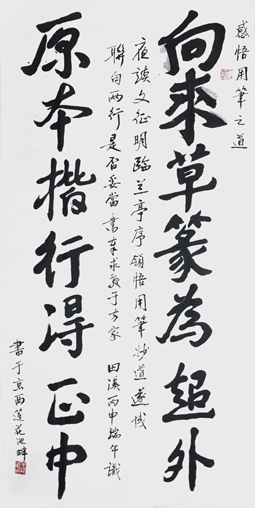 感悟用筆之道
向來草篆為超外
夜讀文征明臨兰亭序領悟用筆妙道遂成
聯句两行是否妥當書来求教于方家 田溪丙申端午識
原本楷行得正中
書于京西蓮花池畔